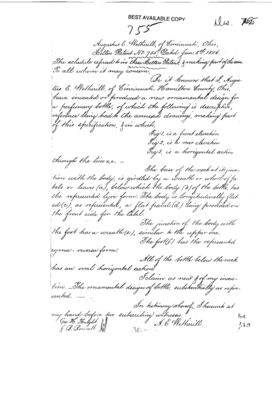 BEST AVAILABLE COPY
755
Augustus E. Wetherill, of Cincinnati, Ohio,
Letters Patent No. 755, dated Jan. 1856
The schedule referred to in these Letters Patent & making part of the same
To all whom it may concern;
Be it known that I, Augus-
E. Wetherill, of Cincinnati, Hamilton County, Ohio,
have invented or produced a new ornamental design for
a perfumery bottle, of which the following is a
reference being had to the annexed drawing, making part
of this specification, in which
Fig 1, is a front elevation
Fig 2, is a elevation
Fig 3, is a horizontal section
through the line
The base of the neck at its junc-
tion with the body, is girdled by a wreath or
or leaves (a), below which the body (b) of the bottle has
the represented lyre form. The body is longitudinally
as represented, a flat panel (d) being provided on
the front side for the label.
The junction of the body with
the foot has a wreath (e), similar to the upper one.
The foot (f) has the represented
form.
All of the bottle below the neck
has an oval horizontal section
I claim as new of my inven-
tion. The ornamental design of bottle, substantially as repre-
sented.
In testimony whereof, I hereunto set
my hand before two subscribing witnesses
A. E. Wetherill
Geo. H. Knight